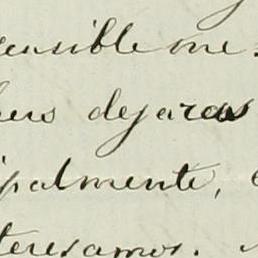 ensible me
dejaras
palmente,
teresamos.